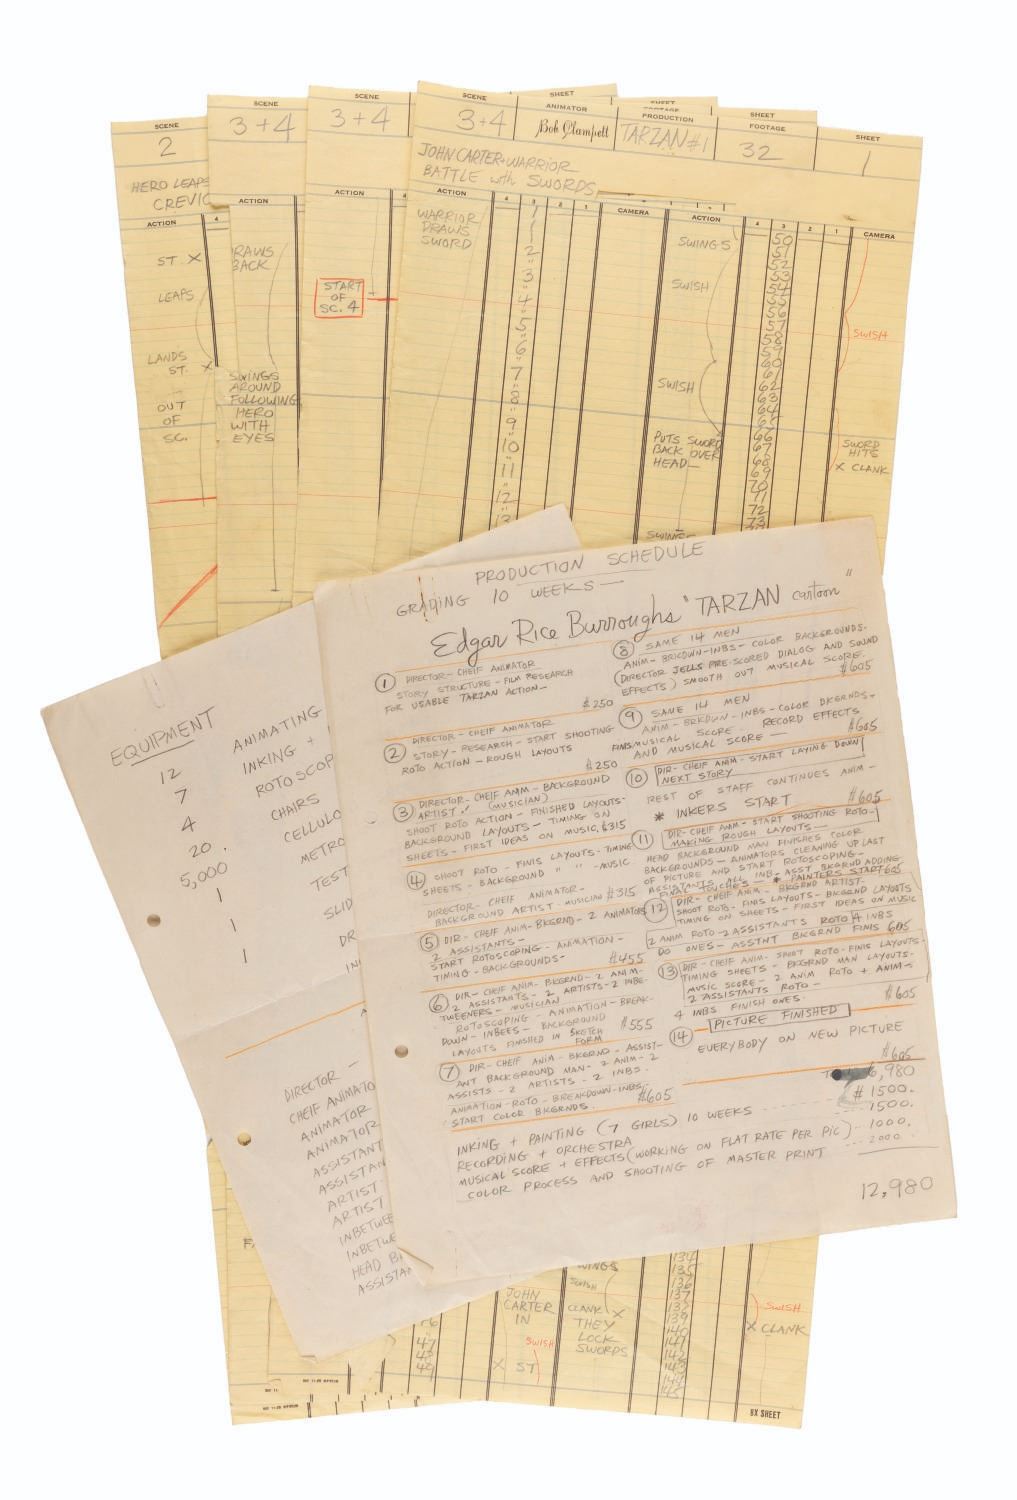 SCENE
2
HERO LEAPS
CREVIC
ACTION
4
ST X
LEAPS
LANDS
ST. X
OUT
OF
SC.
SCENE
3+4
ACTION
DRAWS
BACK
SWINGS
AROUND
FOLLOWING
HERO
WITH
EYES
SCENE
3+4
ACTION
START
OF
SC. 4
SCENE
3+4
SHEET
ANIMATOR
Bob Clampett
SHEET
FOOTAGE
PRODUCTION
TARZAN #1
SHEET
FOOTAGE
32
SHEET
1
JOHN CARTER-WARRIOR
BATTLE with SWORDS
ACTION 4 3 2 1 CAMERA ACTION 4 3 2 1 CAMERA
WARRIOR
DRAWS
SWORD
1
2
3
4
5
6
7
8
9
10
11
12
13
SWINGS
SWISH
SWISH
PUTS SWORD
BACK OVER
HEAD—
SWINGS
50
51
52
53
54
55
56
57
58
59
60
61
62
63
64
65
66
67
68
69
70
71
72
73
SWISH
SWORD
HITS
X CLANK
EQUIPMENT
12 ANIMATING
7 INKING +
4 ROTOSCOP
20. CHAIRS
5,000 CELLULO
1 METRO
1 TEST
1 SLID
DR
IN
DIRECTOR —
CHEIF ANIMATO
ANIMATOR
ANIMATOR
ASSISTANT
ASSISTAN
ARTIST-
ARTIST
INBETWEE
INBETWE
HEAD B
ASSISTA
PRODUCTION SCHEDULE
GRADING 10 WEEKS—
Edgar Rice Burroughs "TARZAN cartoon"
1 DIRECTOR- CHEIF ANIMATOR
STORY STRUCTURE - FILM RESEARCH
FOR USABLE TARZAN ACTION—
$250
2 DIRECTOR- CHEIF ANIMATOR
STORY- RESEARCH- START SHOOTING
ROTO ACTION - ROUGH LAYOUTS
$250
3 DIRECTOR- CHEIF ANIM- BACKGROUND
ARTIST. (MUSICIAN)
SHOOT ROTO ACTION - FINISHED LAYOUTS-
BACKGROUND LAYOUTS- TIMING ON
SHEETS- FIRST IDEAS ON MUSIC. $315
4 SHOOT ROTO - FINIS LAYOUTS- TIMING
SHEETS- BACKGROUND " " -MUSIC
DIRECTOR CHEIF ANIMATOR-
BACKGROUND ARTIST- MUSICIAN $315
5 DIR- CHEIF ANIM- BKGRND- 2 ANIMATORS
2 ASSISTANTS-
START ROTOSCOPING - ANIMATION-
TIMING- BACKGROUNDS-
$455
6 DIR- CHEIF ANIM- BKGRND- 2 ANIM-
2 ASSISTANTS- 2 ARTISTS- 2 INBE-
TWEENERS- MUSICIAN
ROTOSCOPING - ANIMATION- BREAK-
DOWN- INBEES- BACKGROUND
LAYOUTS FINISHED IN SKETCH
FORM
$555
7 DIR- CHEIF ANIM- BKGRND- ASSIST-
ANT BACKGROUND MAN- 2 ANIM- 2
ASSISTS - 2 ARTISTS - 2 INBS.
ANIMATION-ROTO-BREAKDOWN-INBS
START COLOR BKGRNDS.
$605
8 SAME 14 MEN
ANIM- BRKDWN-INBS- COLOR BACKGROUNDS.
(DIRECTOR JELLS PRE-SCORED DIALOG AND SOUND
EFFECTS) SMOOTH OUT MUSICAL SCORE.
$605
9 SAME 14 MEN
ANIM- BRKDWN-INBS-COLOR BKGRNDS-
FINIS MUSICAL SCORE - RECORD EFFECTS
AND MUSICAL SCORE—
$605
10 DIR- CHEIF ANIM- START LAYING DOWN
NEXT STORY
REST OF STAFF CONTINUES ANIM-
* INKERS START
$605
11 DIR- CHEIF ANIM- START SHOOTING ROTO-
MAKING ROUGH LAYOUTS—
HEAD BACKGROUND MAN FINISHES COLOR
BACKGROUNDS- ANIMATORS CLEANING UP LAST
OF PICTURE AND START ROTOSCOPING-
ASSISTANTS ALL INB- ASST BKGRND ADDING
FINAL TOUCHES— * PAINTERS START 605
12 DIR- CHEIF ANIM- BKGRND ARTIST.
SHOOT ROTO- FINIS LAYOUTS- BKGRND LAYOUTS
TIMING ON SHEETS- FIRST IDEAS ON MUSIC
2 ANIM ROTO-2 ASSISTANTS ROTO 4 INBS
DO ONES- ASSTNT BKGRND FINIS 605
13 DIR- CHEIF ANIM- SHOOT ROTO-FINIS LAYOUTS-
TIMING SHEETS- BKGRND MAN LAYOUTS-
MUSIC SCORE- 2 ANIM ROTO + ANIM-
2 ASSISTANTS ROTO-
4 INBS FINISH ONES.
$605
14 PICTURE FINISHED
EVERYBODY ON NEW PICTURE
$605
6,980
INKING + PAINTING (7 GIRLS) 10 WEEKS $1500.
RECORDING + ORCHESTRA 1500.
MUSICAL SCORE + EFFECTS (WORKING ON FLAT RATE PER PIC) 1000.
COLOR PROCESS AND SHOOTING OF MASTER PRINT 2000.
12,980
JOHN
CARTER
IN
SWISH
X ST
47
48
49
SWISH
CLANK X
THEY
LOCK
SWORDS
134
135
136
137
138
139
140
141
142
143
144
145
SWISH
X CLANK
BX SHEET